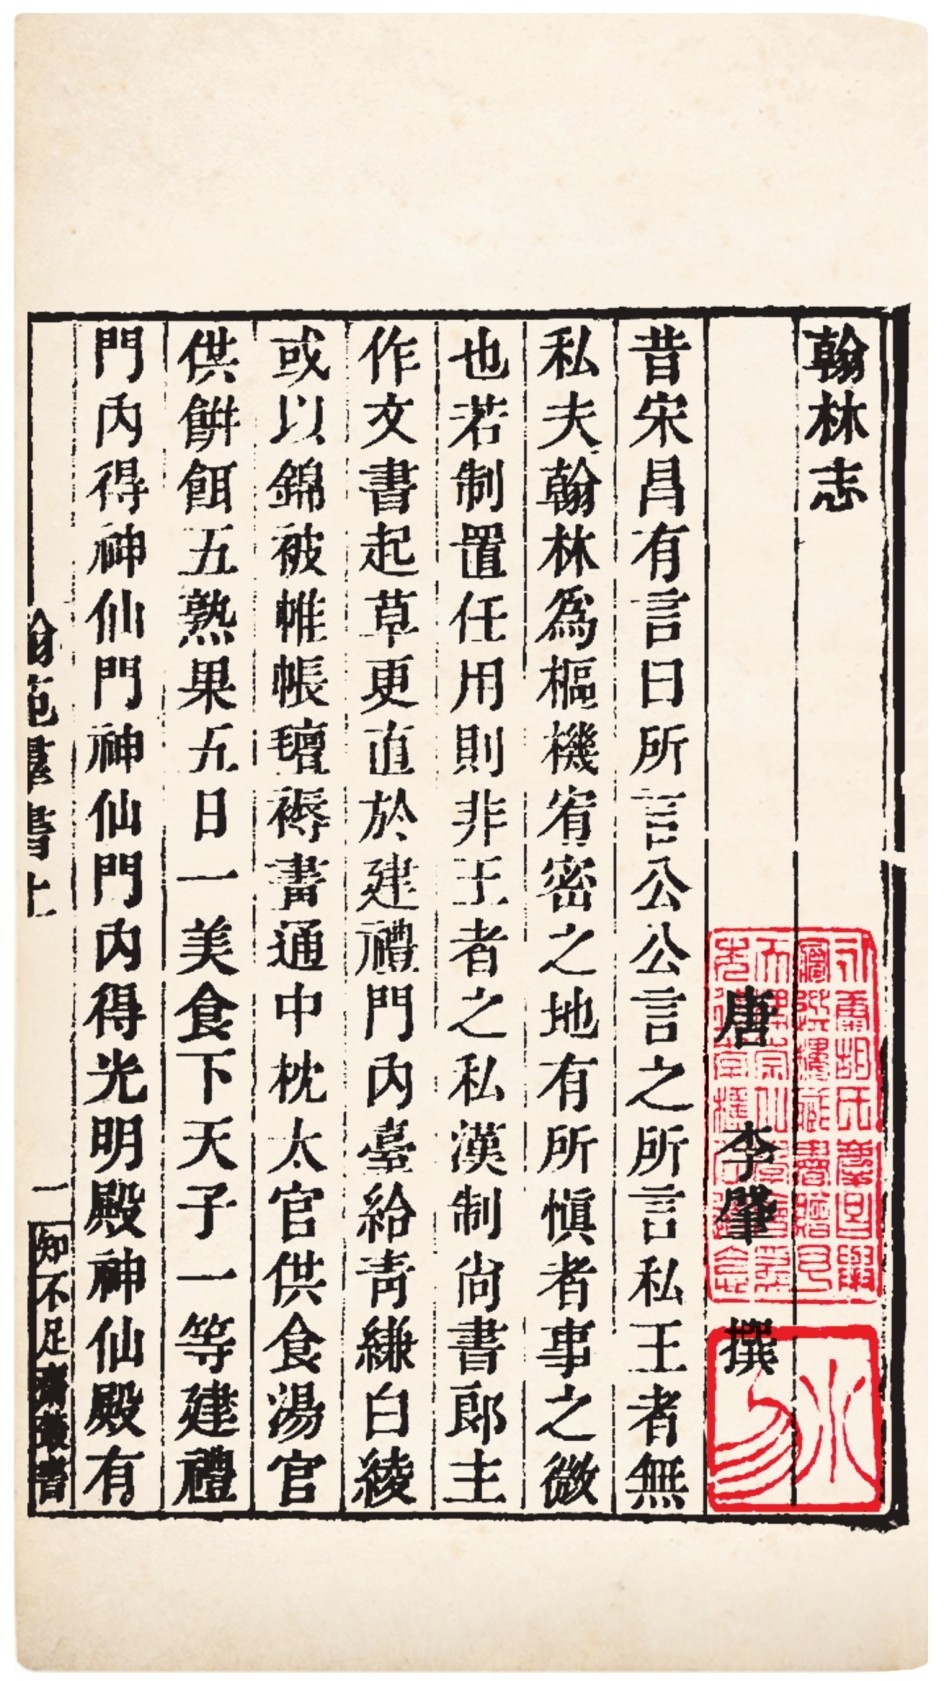 翰林志
唐 李肇 撰
昔宋昌有言曰所言公公言之所言私王者無
私夫翰林為樞機宥密之地有所慎者事之微
也若制置任用則非王者之私漢制尚書郎主
作文書起草更直於建禮門內臺給青縑白綾
或以錦被帷帳氊褥畫通中枕太官供食湯官
供餅餌五熟果五日一美食下天子一等建禮
門內得神仙門神仙門內得光明殿神仙殿有
翰苑羣書上
一
知不足齋叢書